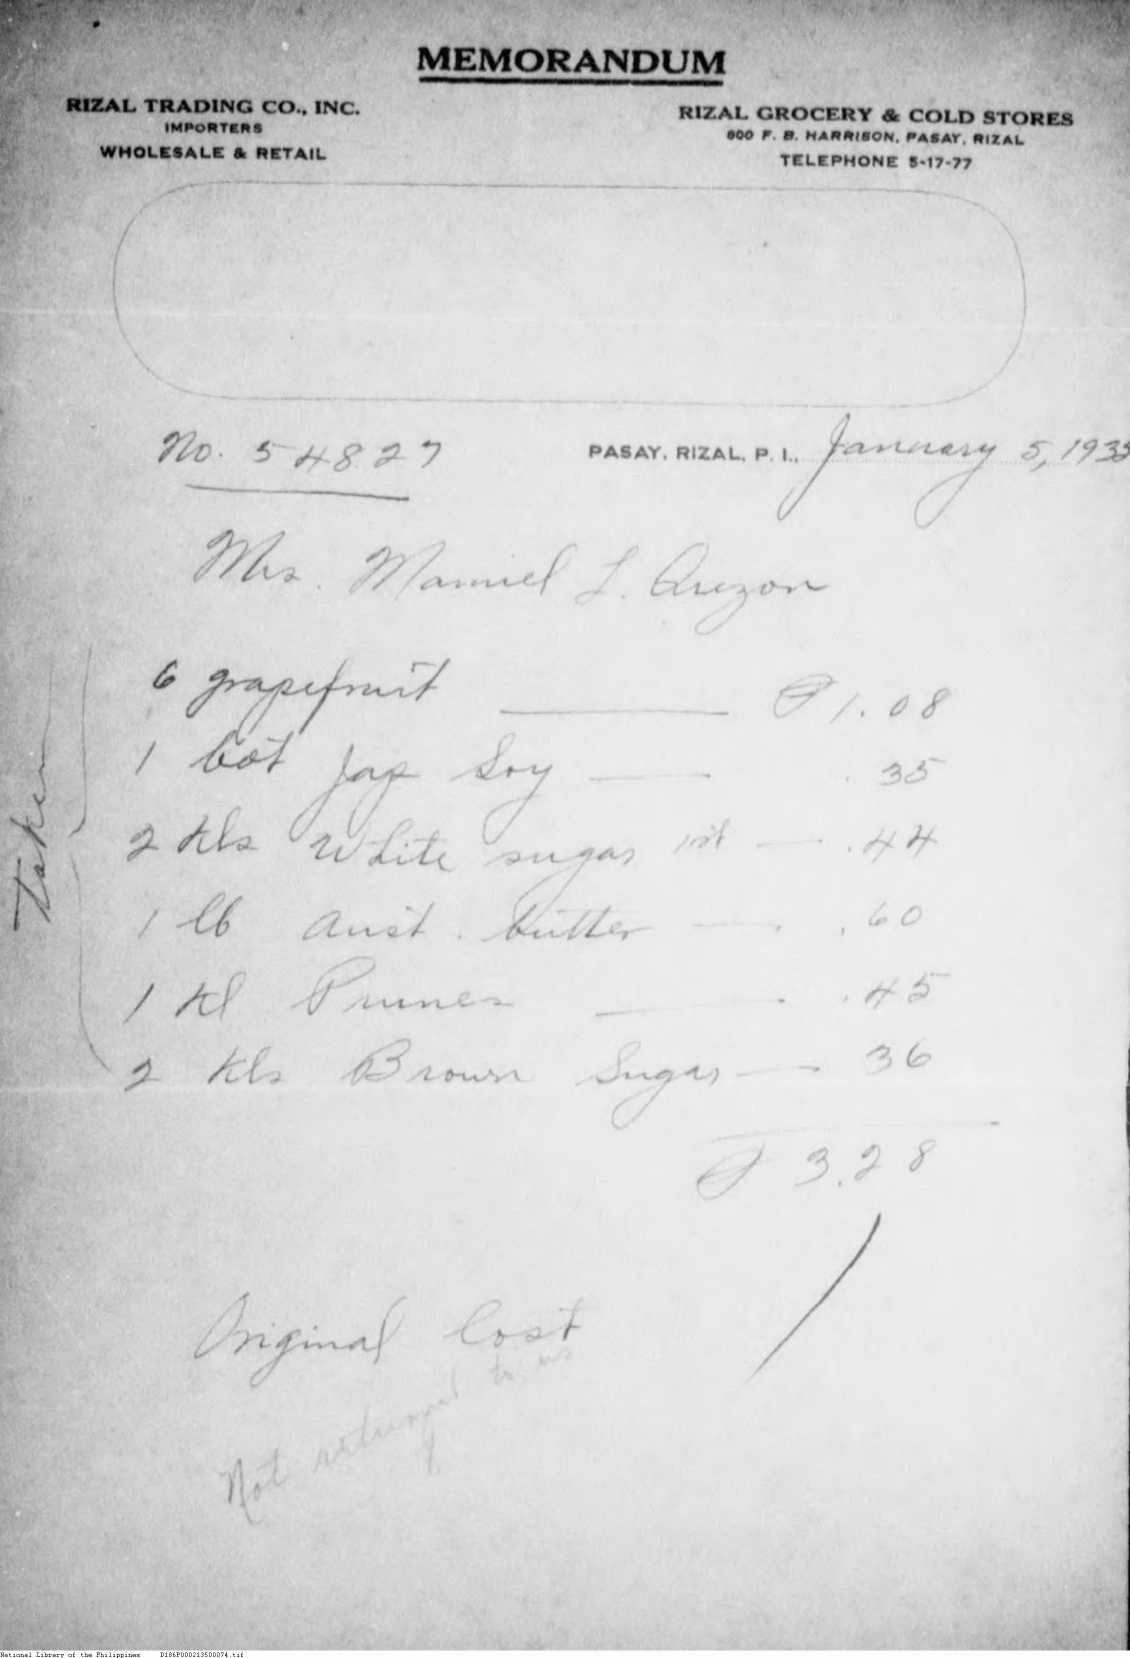 MEMORANDUM
RIZAL TRADING CO., INC.
IMPORTERS
WHOLESALE & RETAIL
RIZAL GROCERY & COLD STORES
800 F. B. HARRISON, PASAY, RIZAL
TELEPHONE 5-17-77
No. 54827
PASAY, RIZAL, P. I., January 5, 1935
Mrs. Manuel L.
Taken
6 grapefruit ₱1.08
1 bot Jap Soy .35
2 kls White sugar .44
1 lb Aust. butter .60
1 kl Prunes .45
2 kls Brown Sugar 36
₱ 3.28
Original Cost
Not returned to us
National Library of the Philippines D186P000213500074.tif